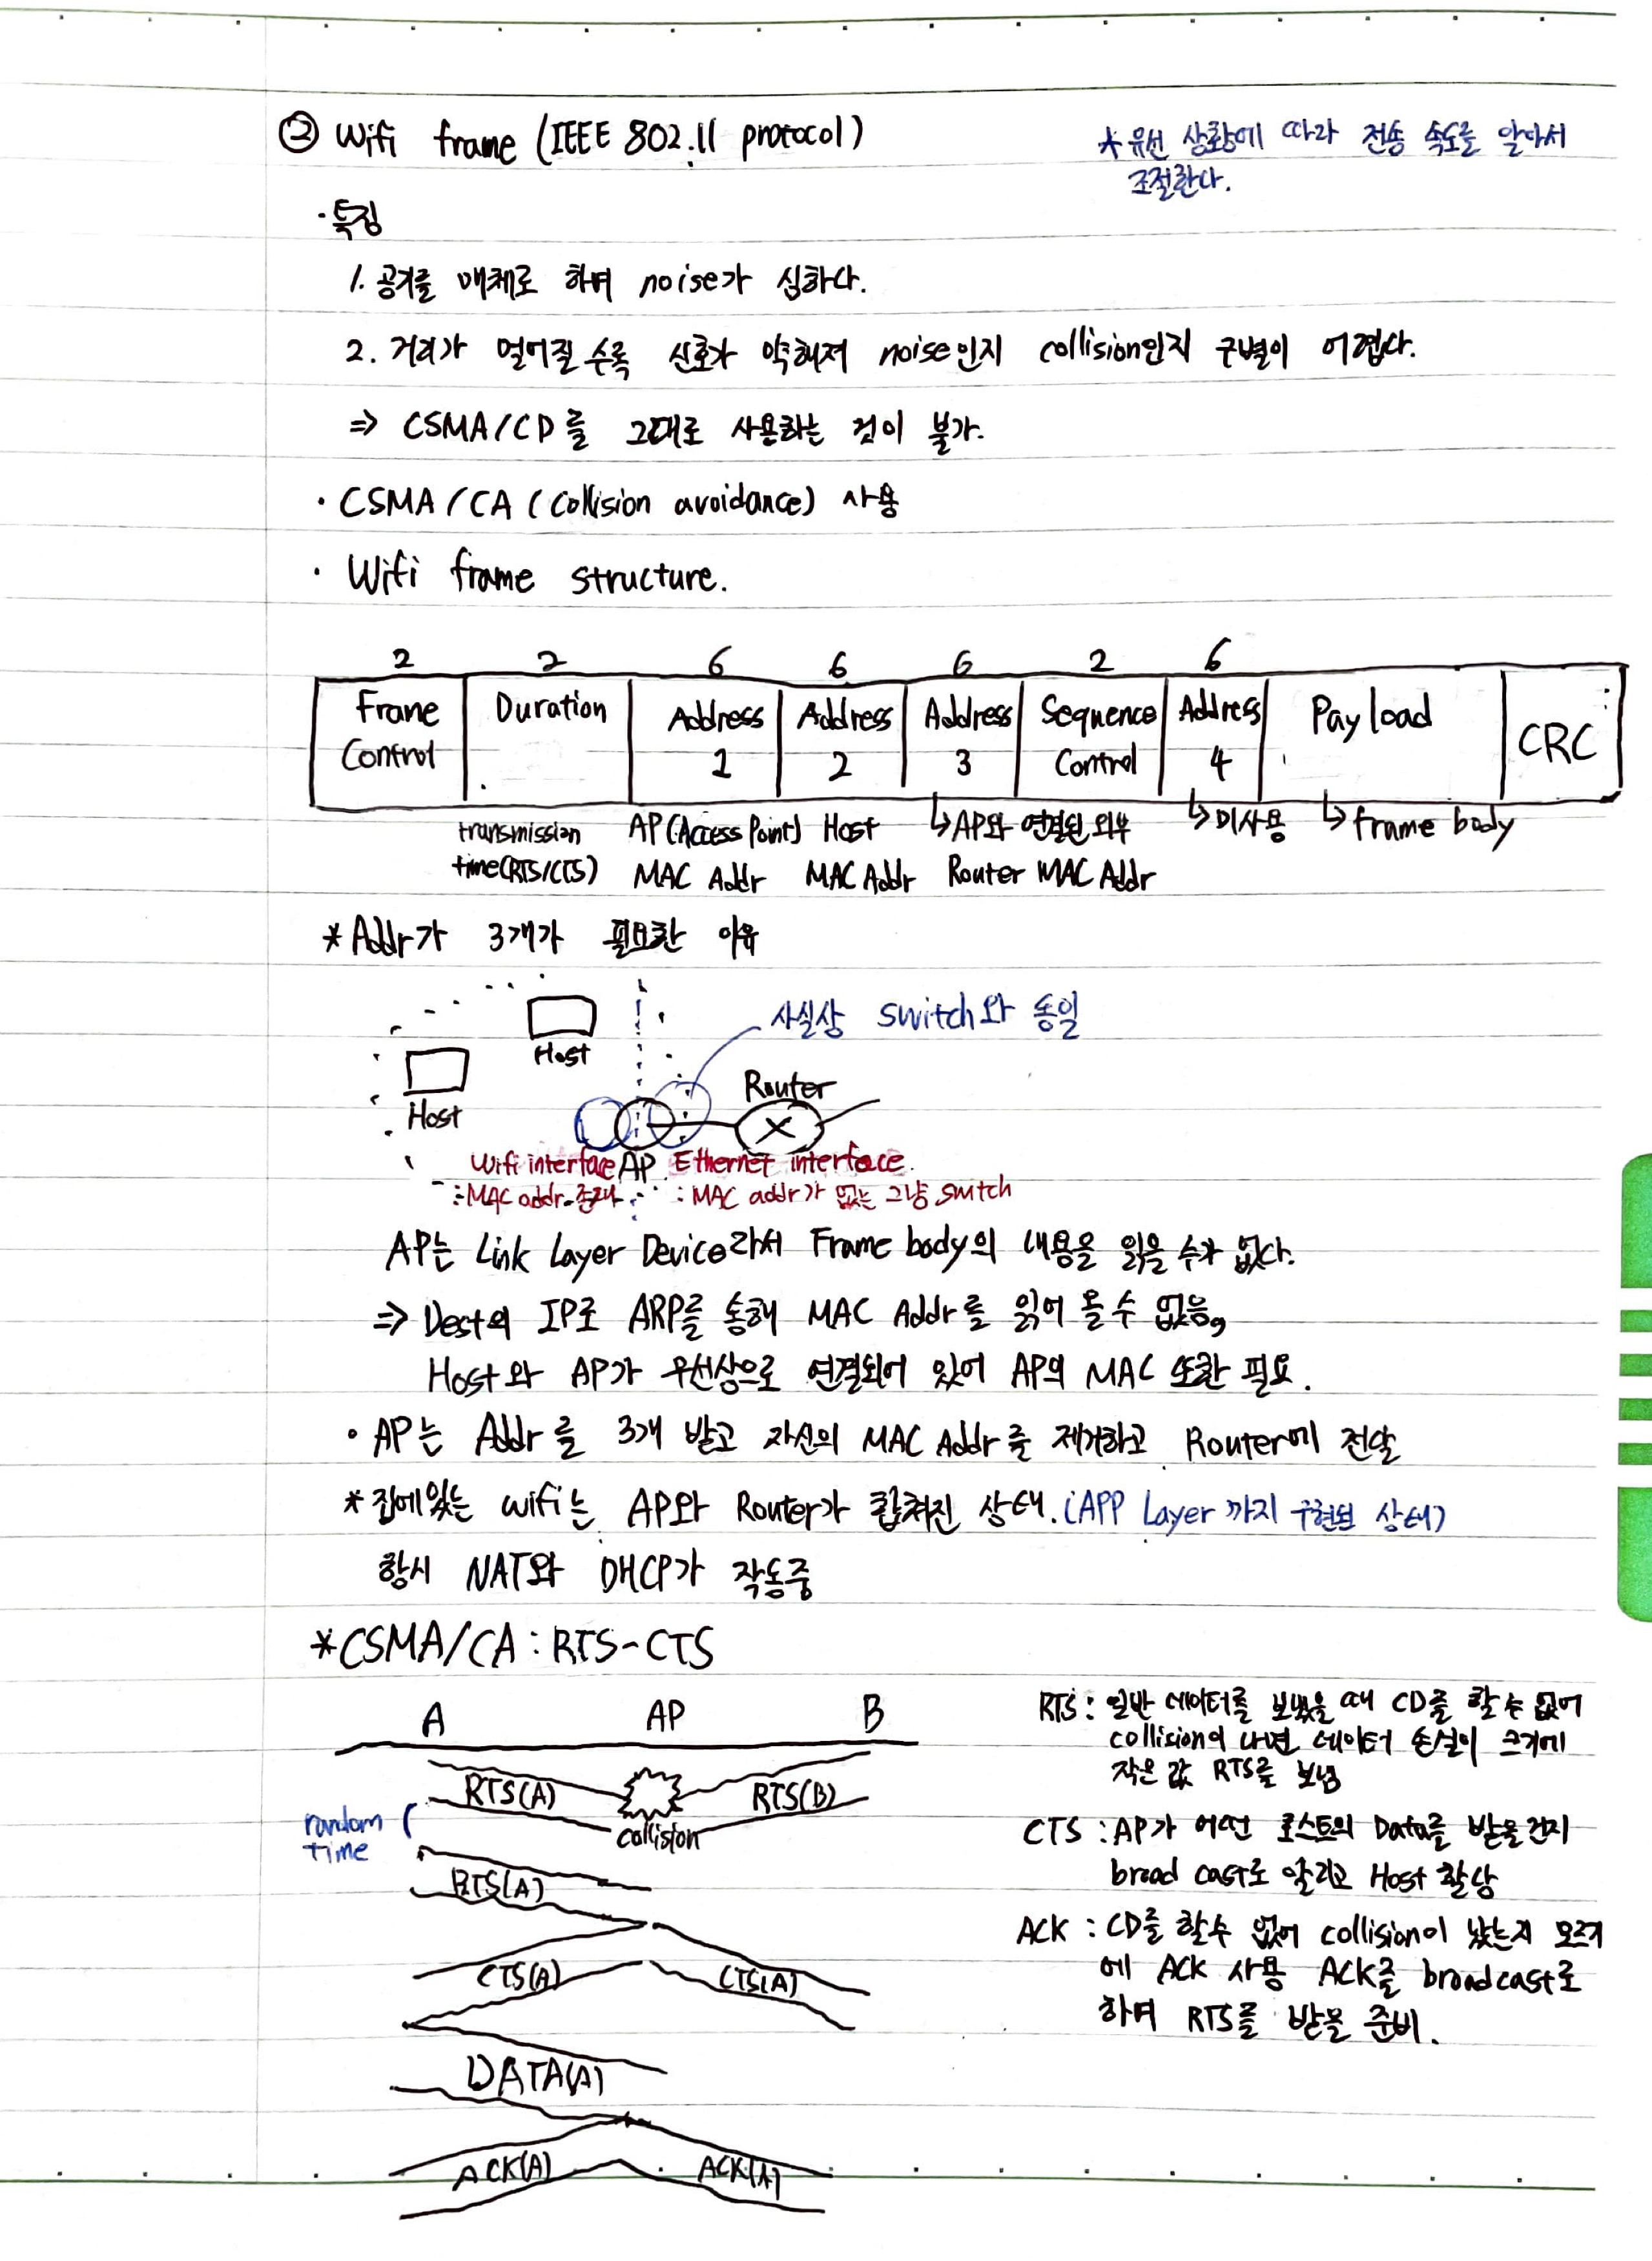 ② Wifi frame (IEEE 802.11 protocol)
* 유선 상황에 따라 전송 속도를 알아서
조절한다.
· 특징
1. 공기를 매체로 하며 noise가 심하다.
2. 거리가 멀어질 수록 신호가 약해져 noise인지 collision인지 구별이 어렵다.
⇒ CSMA/CD를 그대로 사용하는 것이 불가.
· CSMA/CA (Collision avoidance) 사용
· Wifi frame structure.
2 2 6 6 6 2 6
Frame Duration Address Address Address Sequence Address Payload CRC
Control 1 2 3 Control 4
transmission AP(Access Point) Host ↳AP와 연결된 외부 ↳미사용 ↳frame body
time(RTS/CTS) MAC Addr MAC Addr Router MAC Addr
* Addr가 3개가 필요한 이유
사실상 switch와 동일
Host
Host
Router
Wifi interface AP Ethernet interface.
: MAC addr 존재 : MAC addr가 없는 그냥 switch
AP는 Link Layer Device라서 Frame body의 내용을 읽을 수가 없다.
⇒ Dest의 IP로 ARP를 통해 MAC Addr를 읽어 올 수 없음,
Host와 AP가 무선상으로 연결되어 있어 AP의 MAC 또한 필요.
· AP는 Addr를 3개 받고 자신의 MAC Addr를 제거하고 Router에 전달
* 집에있는 wifi는 AP와 Router가 합쳐진 상태. (APP Layer 까지 구현된 상태)
항시 NAT와 DHCP가 작동중
* CSMA/CA : RTS-CTS
A AP B
RTS(A) RTS(B)
collision
random
time
RTS(A)
CTS(A) CTS(A)
DATA(A)
ACK(A) ACK(A)
RTS : 일반 데이터를 보냈을 때 CD를 할 수 없어
collision이 나면 데이터 손실이 크기에
작은 값 RTS를 보냄
CTS : AP가 어떤 호스트의 Data를 받을건지
broad cast로 알리고 Host 할당
ACK : CD를 할수 없어 collision이 났는지 모르기
에 ACK 사용 ACK를 broadcast로
하며 RTS를 받을 준비.